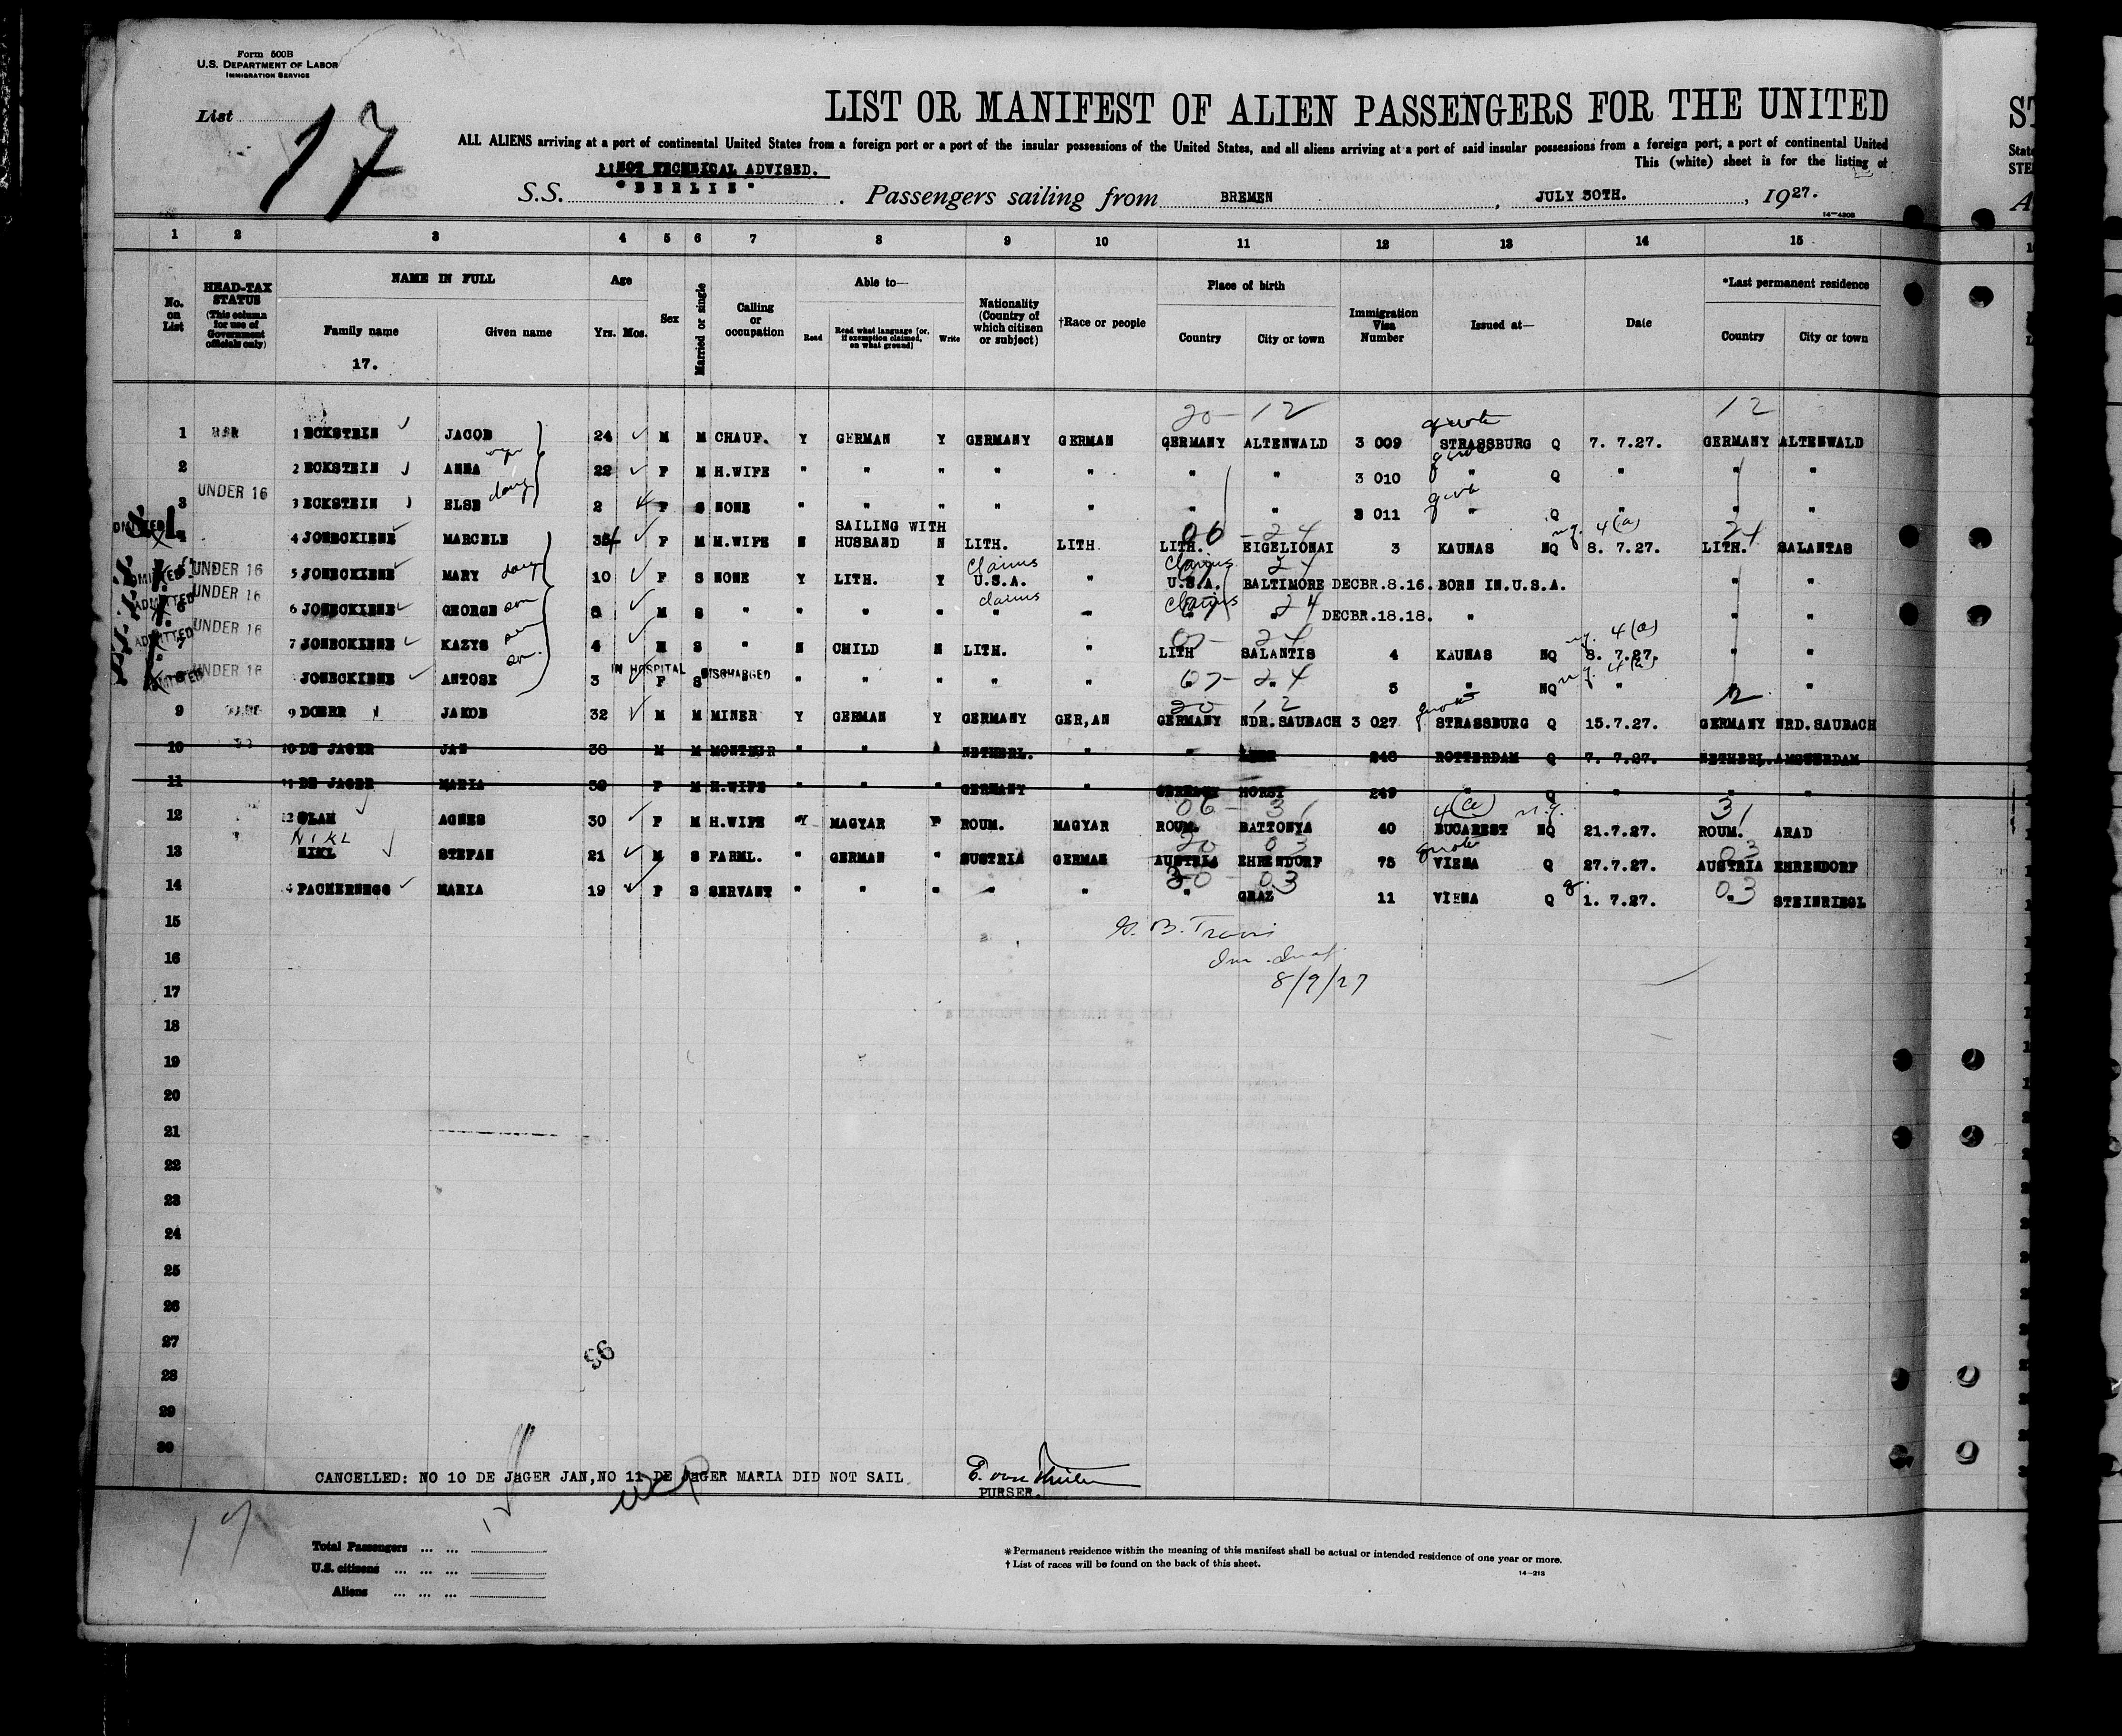 Form 500B
U.S. DEPARTMENT OF LABOR
IMMIGRATION SERVICE
List 17
LIST OR MANIFEST OF ALIEN PASSENGERS FOR THE UNITED
ALL ALIENS arriving at a port of continental United States from a foreign port or a port of the insular possessions of the United States, and all aliens arriving at a port of said insular possessions from a foreign port, a port of continental United
This (white) sheet is for the listing of
NOT TECHNICAL ADVISED.
S.S. "BERLIN". Passengers sailing from BREMEN, JULY 30TH., 1927.
14—4208
1 2 3 4 5 6 7 8 9 10 11 12 13 14 15
No. on List
HEAD-TAX STATUS (This column for use of Government officials only)
NAME IN FULL
Family name
Given name
17.
Age
Yrs. Mos.
Sex
Married or single
Calling or occupation
Able to—
Read
Read what language [or, if exemption claimed, on what ground]
Write
Nationality (Country of which citizen or subject)
†Race or people
Place of birth
Country
City or town
Immigration Visa Number
Issued at—
Date
*Last permanent residence
Country
City or town
20 - 12 12
1 1 ECKSTEIN JACOB 24 M M CHAUF. Y GERMAN Y GERMANY GERMAN GERMANY ALTENWALD 3 009 quota STRASSBURG Q 7. 7.27. GERMANY ALTENWALD
2 2 ECKSTEIN ANNA wife 22 F M H.WIFE " " " " " " " 3 010 quota " Q " " "
3 UNDER 16 3 ECKSTEIN ELSE daug 2 F S NONE " " " " " " " 3 011 " Q " " "
4 4 JONECKIENE MARCELE 34 F M H.WIFE N SAILING WITH HUSBAND N LITH. LITH LITH. EIGELIONAI 3 KAUNAS NQ nq. 4(a) 8. 7.27. LITH. SALANTAS
5 UNDER 16 5 JONECKIENE MARY daug 10 F S NONE Y LITH. Y claims U.S.A. " claims U.S.A. BALTIMORE DECBR.8.16. BORN IN.U.S.A. " "
6 UNDER 16 6 JONECKIENE GEORGE son 8 M S " " " " claims " " claims " " DECBR.18.18. " " "
7 UNDER 16 7 JONECKIENE KAZYS son 4 M S " N CHILD N LITH. " LITH SALANTIS 4 KAUNAS NQ nq. 4(a) 8. 7.27. " "
8 UNDER 16 JONECKIENE ANTOSE 3 IN HOSPITAL DISCHARGED F S " " " " " " " 5 " NQ nq. 4(a) " " "
9 9 DOERR JAKOB 32 M M MINER Y GERMAN Y GERMANY GER,AN GERMANY NDR.SAUBACH 3 027 quota STRASSBURG Q 15.7.27. GERMANY NRD.SAUBACH
10 10 DE JAGER JAN 38 M M MONTEUR " " " NETHERL. " " 248 ROTTERDAM Q 7. 7.27. NETHERL. AMSTERDAM
11 11 DE JAGER MARIA F M H.WIFE " " " GERMANY " GERMANY HORST 249 " Q " " "
12 12 OLAH AGNES 30 F M H.WIFE Y MAGYAR Y ROUM. MAGYAR ROUM. BATTONYA 40 4(a) n.q. BUCAREST NQ 21.7.27. ROUM. ARAD
NIKL
13 NIKL STEFAN 21 M S FARML. " GERMAN " AUSTRIA GERMAN AUSTRIA EHRENDORF 75 quota VIENA Q 27.7.27. AUSTRIA EHRENDORF
14 PACHERNEGG MARIA 19 F S SERVANT " " " " " " GRAZ 11 VIENA Q 1. 7.27. " STEINRIEGL
15 G. B. Travis
16
17 8/9/27
18
19
20
21
22
23
24
25
26
27
96
28
29
30
CANCELLED: NO 10 DE JaGER JAN,NO 11 DE JaGER MARIA DID NOT SAIL
PURSER.
17
Total Passengers ... ...
U.S. citizens ... ... ...
Aliens ... ... ...
*Permanent residence within the meaning of this manifest shall be actual or intended residence of one year or more.
†List of races will be found on the back of this sheet.
14—213